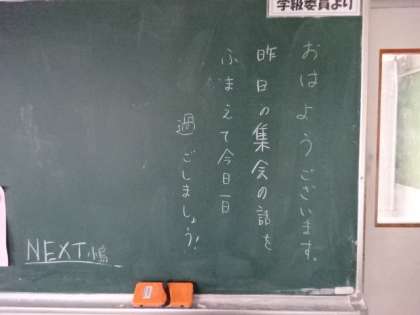 学級委員より
おはようございます。
昨日の集会の話を
ふまえて今日一日
過ごしましょう!
NEXT